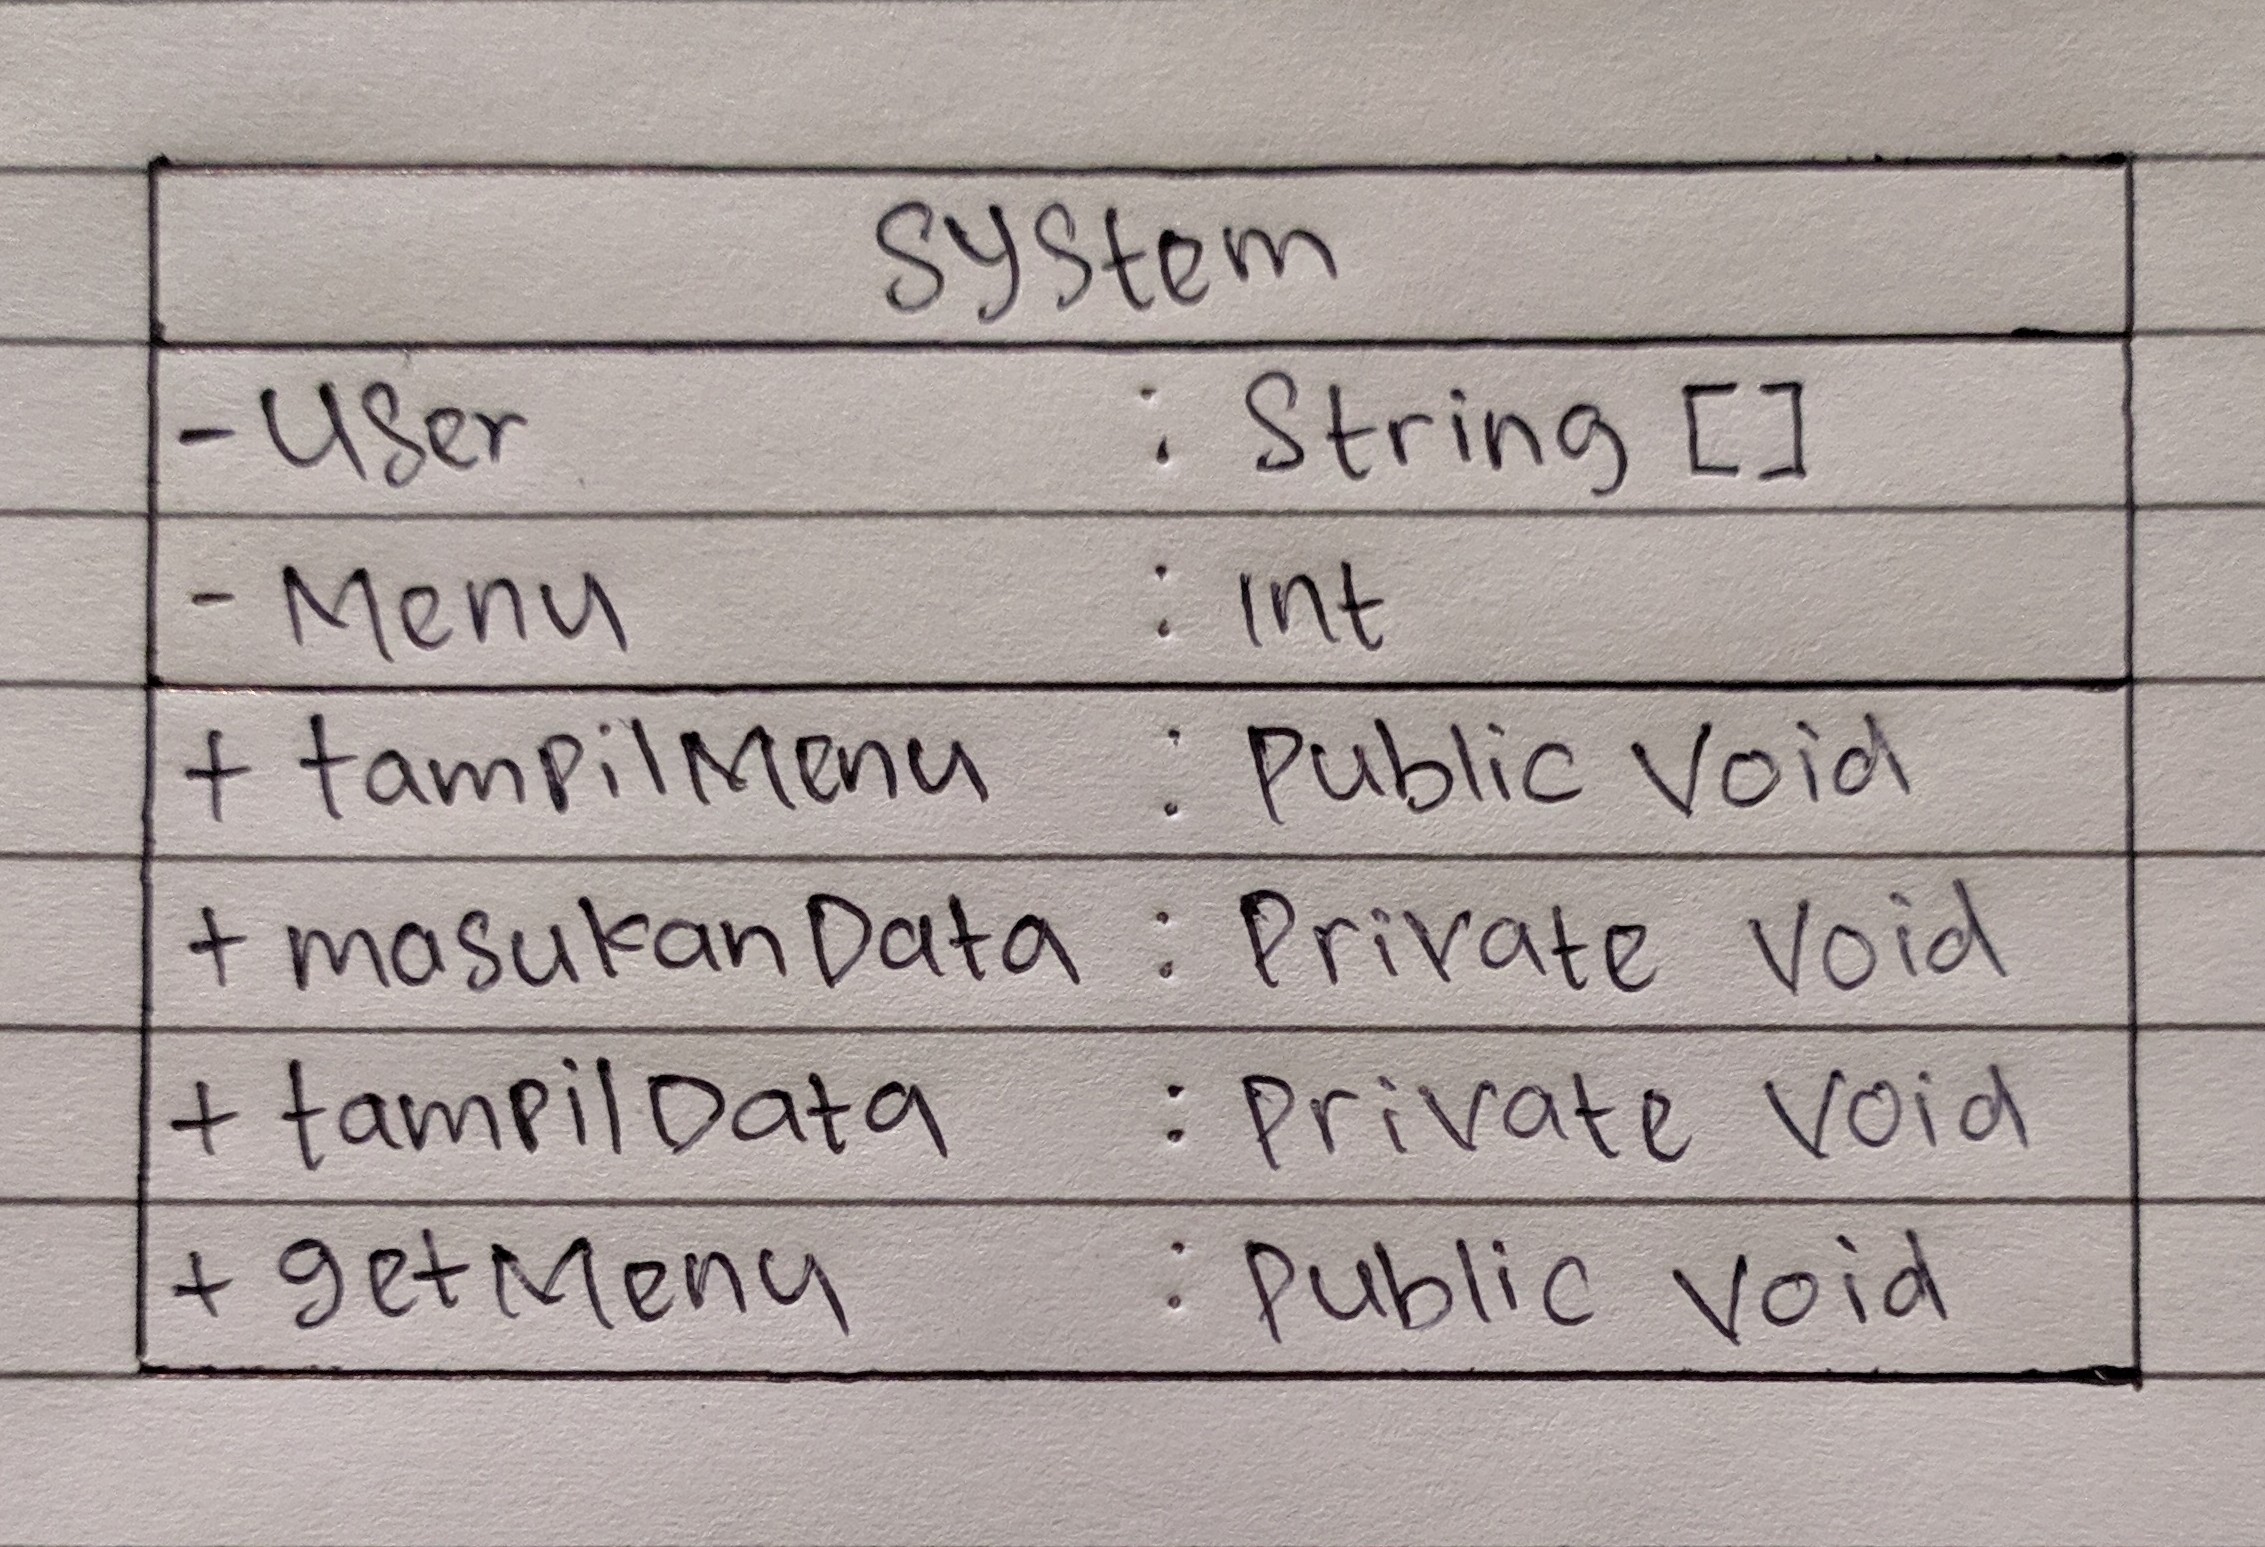 System
- User : String []
- Menu : int
+ tampilMenu : Public Void
+ masukanData : Private Void
+ tampilData : Private Void
+ getMenu : Public Void